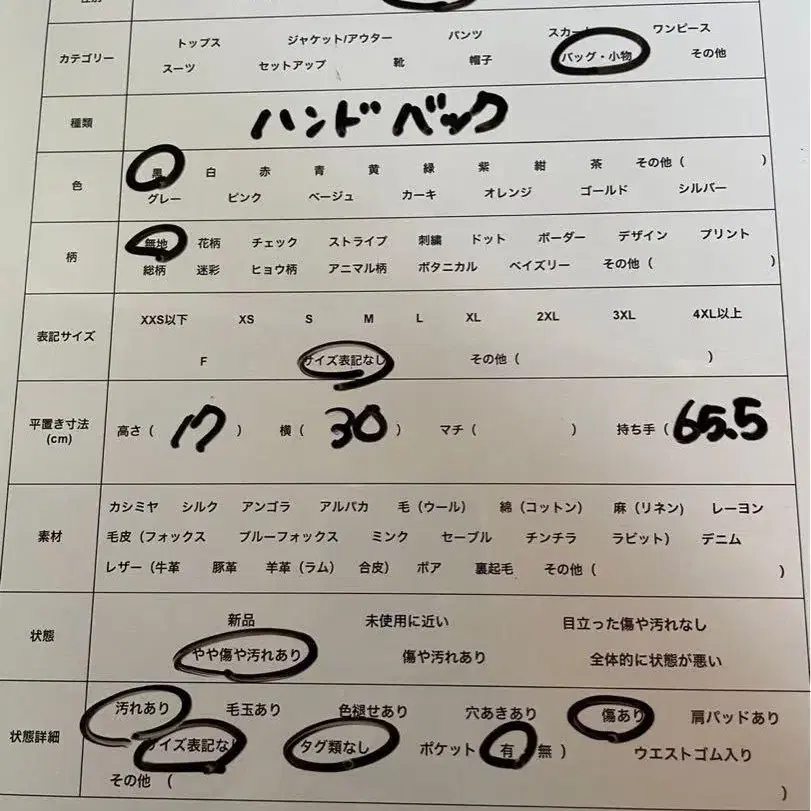 カテゴリー トップス ジャケット/アウター パンツ スカート ワンピース
スーツ セットアップ 靴 帽子 バッグ・小物 その他
種類 ハンドベック
色 黒 白 赤 青 黄 緑 紫 紺 茶 その他 ( )
グレー ピンク ベージュ カーキ オレンジ ゴールド シルバー
柄 無地 花柄 チェック ストライプ 刺繍 ドット ボーダー デザイン プリント
総柄 迷彩 ヒョウ柄 アニマル柄 ボタニカル ペイズリー その他 ( )
表記サイズ XXS以下 XS S M L XL 2XL 3XL 4XL以上
F サイズ表記なし その他 ( )
平置き寸法
(cm) 高さ ( 17 ) 横 ( 30 ) マチ ( ) 持ち手 ( 65.5
素材 カシミヤ シルク アンゴラ アルパカ 毛 (ウール) 綿 (コットン) 麻 (リネン) レーヨン
毛皮 (フォックス ブルーフォックス ミンク セーブル チンチラ ラビット) デニム
レザー (牛革 豚革 羊革 (ラム) 合皮) ボア 裏起毛 その他 ( )
状態 新品 未使用に近い 目立った傷や汚れなし
やや傷や汚れあり 傷や汚れあり 全体的に状態が悪い
状態詳細 汚れあり 毛玉あり 色褪せあり 穴あきあり 傷あり 肩パッドあり
サイズ表記なし タグ類なし ポケット 有 無 ) ウエストゴム入り
その他 ( )